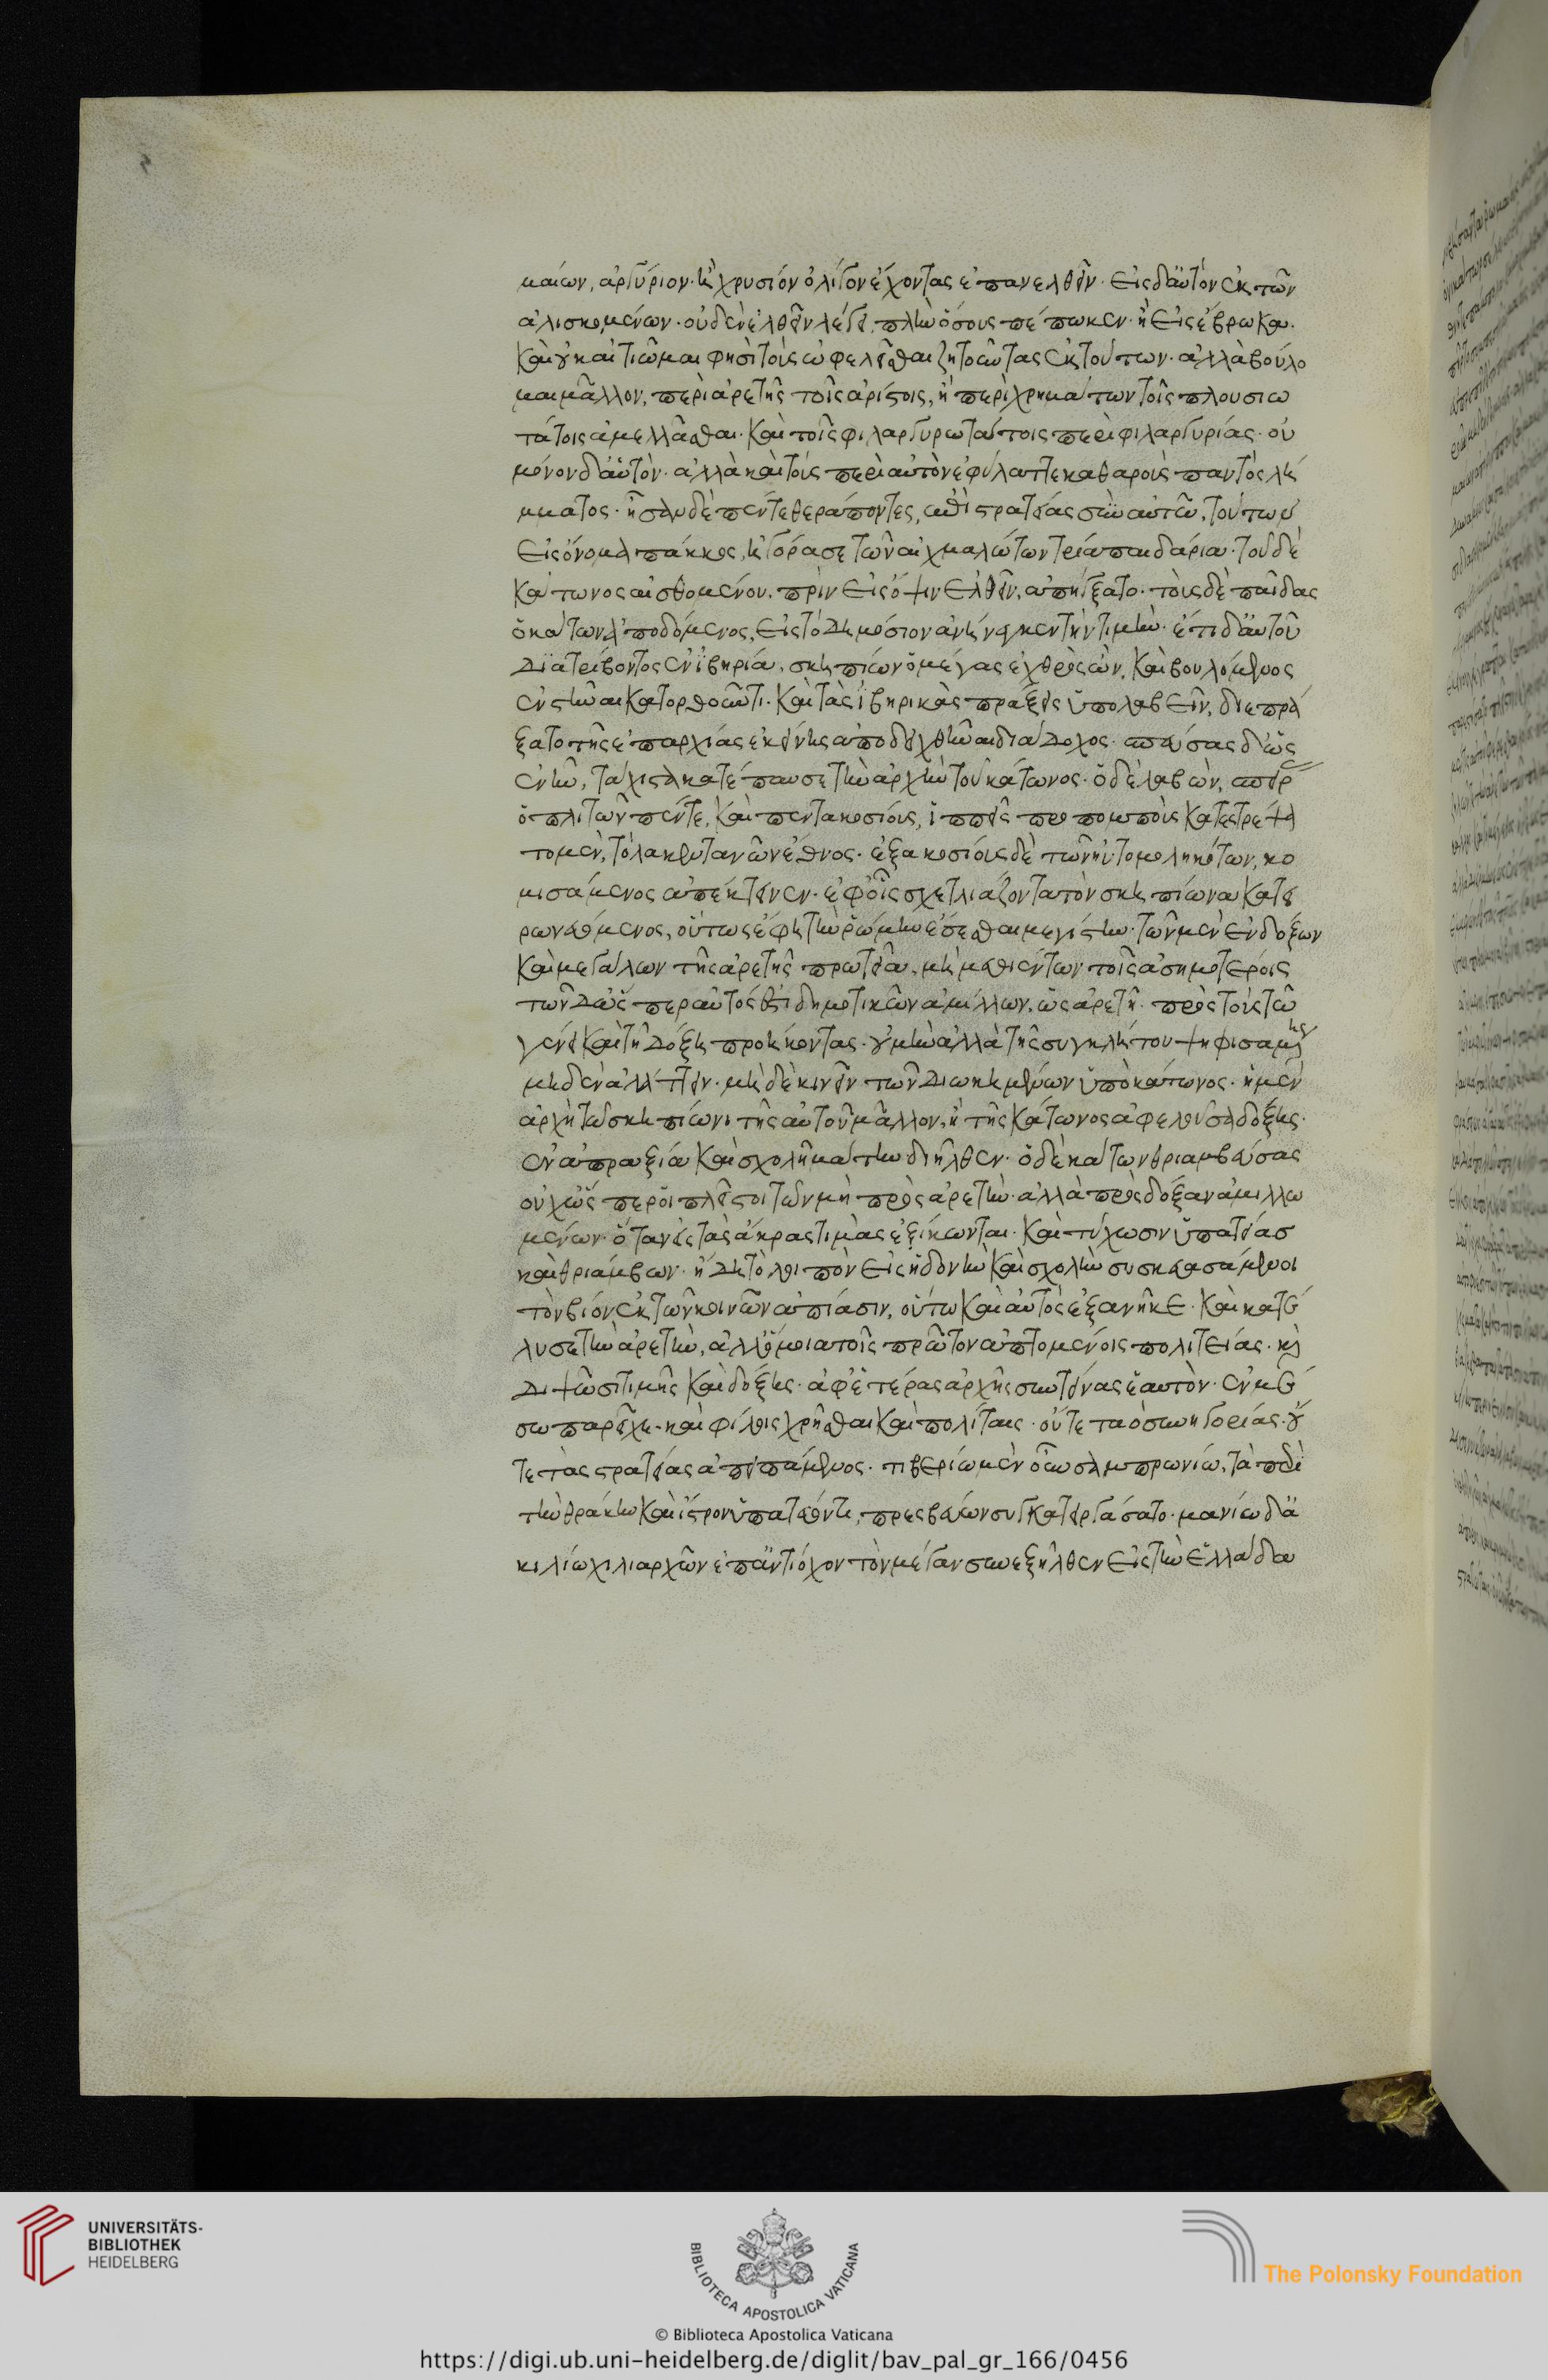 μαίων, ἀργύριον· ἢ χρυσίον ὀλίγον ἔχοντας ἐπανελθεῖν· εἰς δ' αὑτὸν ἐκ τῶν
ἁλισκομένων· οὐδὲν ἐλθεῖν λέγει, πλὴν ὅσους πέπωκεν· ἢ εἰς ἐβρωκα.
καὶ οὐκ αἰτιῶμαι φησὶ τοὺς ὠφελεῖσθαι ζητοῦντας ἐκ τούτων· ἀλλὰ βούλο
μαι μᾶλλον, περὶ ἀρετῆς τοῖς ἀρίστοις, ἢ περὶ χρημάτων τοῖς πλουσιω
τάτοις ἁμιλλᾶσθαι· καὶ τοῖς φιλαργυρωτάτοις περὶ φιλαργυρίας· οὐ
μόνον δ' αὑτὸν· ἀλλὰ καὶ τοὺς περὶ αὐτὸν ἐφύλαττε καθαροὺς παντὸς λή
μματος· ἦσαν δὲ πέντε θεράποντες, ἐπὶ στρατείας σὺν αὐτῷ, τούτων
εἷς ὄνομα πάκκος, ἠγόρασε τῶν αἰχμαλώτων τρία παιδάρια· τοῦ δὲ
κάτωνος αἰσθομένου, πρὶν εἰς ὄψιν ἐλθεῖν, ἀπήγξατο· τοὺς δὲ παῖδας
ὁ κάτων ἀποδόμενος, εἰς τὸ δημόσιον ἀνήνεγκεν τὴν τιμὴν· ἔτι δ' αὐτοῦ
διατρίβοντος ἐν ἰβηρίᾳ, σκηπίων ὁ μέγας ἐχθρὸς ὢν, καὶ βουλόμενος
ἐνστῆναι κατορθοῦντι· καὶ τὰς ἰβηρικὰς πράξεις ὑπολαβεῖν, διεπρά
ξατο τῆς ἐπαρχίας ἐκείνης ἀποδειχθῆναι διάδοχος· σπεύσας δ' ὡς
ἐνῆν, τάχιστα κατέπαυσε τὴν ἀρχὴν τοῦ κάτωνος· ὁ δὲ λαβὼν, σπείρ
ὁπλιτῶν πέντε, καὶ πεντακοσίους, ἱππεῖς προπομποὺς κατεστρέψα
το μὲν, τὸ λακευτανῶν ἔθνος· ἑξακοσίους δὲ τῶν ηὐτομοληκότων, κο
μισάμενος ἀπέκτεινεν· ἐφ' οἷς σχετλιάζοντα τὸν σκηπίωνα κατει
ρωνευόμενος, οὕτως ἔφη τὴν ῥώμην ἔσεσθαι μεγίστην· τῶν μὲν ἐνδόξων
καὶ μεγάλων τῆς ἀρετῆς πρωτεῖα, μὴ μεθιέντων τοῖς ἀσημοτέροις
τῶν δ' ὥσπερ αὐτὸς ἐστι δημοτικῶν ἁμιλλων, ὡς ἀρετῇ· πρὸς τοὺς τῷ
γένει καὶ τῇ δόξῃ προήκοντας· οὐ μὴν ἀλλὰ τῆς συγκλήτου ψηφισαμένης
μηδὲν ἀλλάττειν· μὴ δὲ κινεῖν τῶν διωκημένων ὑπὸ κάτωνος· ἡ μὲν
ἀρχὴ τῷ σκηπίωνι τῆς αὐτοῦ μᾶλλον, ἢ τῆς κάτωνος ἀφελοῦσα δόξης·
ἐν ἀπραξίᾳ καὶ σχολῇ μάτην διῆλθεν· ὁ δὲ κάτων θριαμβεύσας
οὐχ ὥσπερ οἱ πλεῖστοι τῶν μὴ πρὸς ἀρετὴν· ἀλλὰ πρὸς δόξαν ἁμιλλω
μένων· ὅταν εἰς τὰς ἄκρας τιμὰς ἐξίκωνται· καὶ τύχωσιν ὑπατείας
καὶ θριάμβων· ἤδη τὸ λοιπὸν εἰς ἡδονὴν καὶ σχολὴν συσκευασάμενοι
τὸν βίον ἐκ τῶν κοινῶν ἀπίασιν, οὕτω καὶ αὐτὸς ἐξανῆκε· καὶ κατέ
λυσε τὴν ἀρετὴν, ἀλλ' ὅμοια τοῖς πρῶτον ἁπτομένοις πολιτείας· καὶ
διψῶσι τιμῆς καὶ δόξης· ἀφ' ἑτέρας ἀρχῆς συντείνας ἑαυτὸν· ἐν μέ
σω παρεῖχε· καὶ φίλοις χρῆσθαι καὶ πολίταις· οὔτε τὰς συνηγορίας· οὔ
τε τὰς στρατείας ἀπειπάμενος· τιβερίῳ μὲν οὖν σαμπρωνίῳ, τὰ περὶ
τὴν θράκην καὶ ἴστρον ὑπατεύοντι, πρεσβεύων συγκατειργάσατο· μανίῳ δ' ἀ
κιλίῳ χιλιαρχῶν ἐπ' ἀντίοχον τὸν μέγαν συνεξῆλθεν εἰς τὴν ἑλλάδα
UNIVERSITÄTS-
BIBLIOTHEK
HEIDELBERG
BIBLIOTECA APOSTOLICA VATICANA
© Biblioteca Apostolica Vaticana
The Polonsky Foundation
https://digi.ub.uni-heidelberg.de/diglit/bav_pal_gr_166/0456